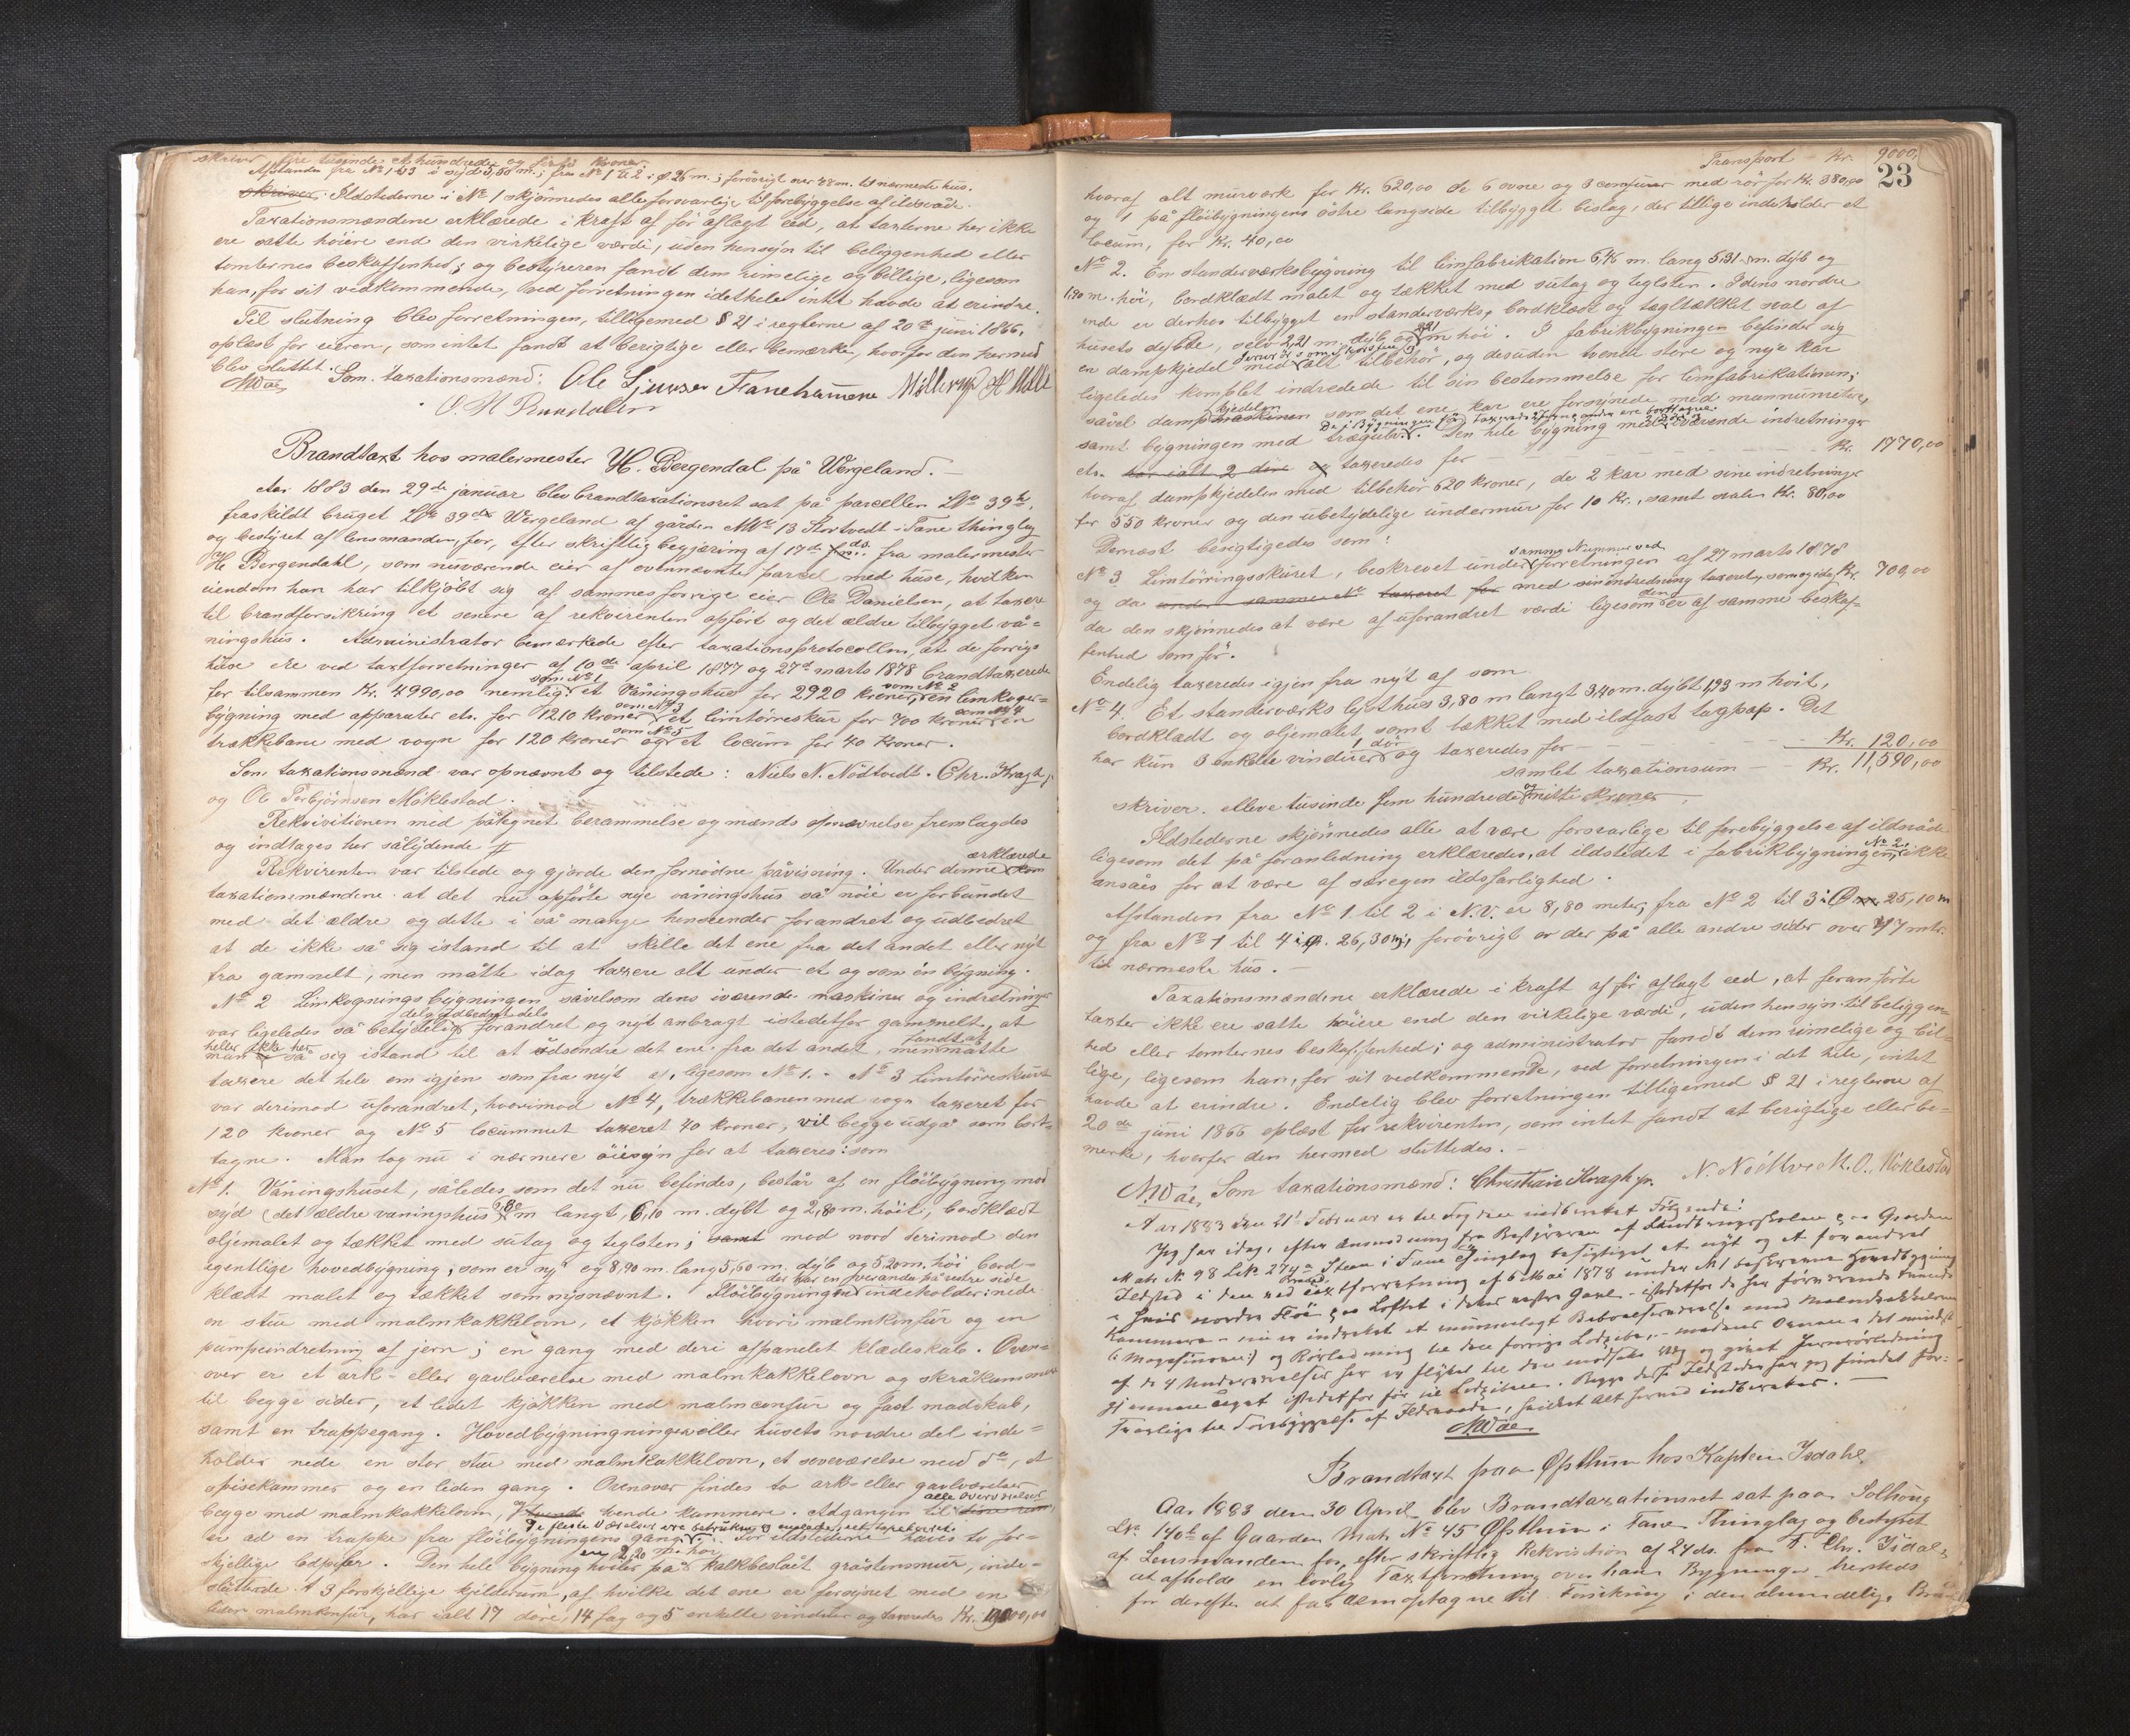 skriver fire tusinde et hundrede og firti Kroner.
Afstanden fra No 1 til 3 i syd 5,50 m.; fra No 1 til 2 i Ø 26 m.; forövrigt over 48 m. til nærmeste hus.
skriver: Ildstederne i No 1 skjönnedes alle forsvarlige til forebyggelse af ildsvåde.
Taxationsmændene erklærede i kraft af för aflagt eed, at taxterne her ikke
ere satte höiere end den virkelige værdi, uden hensyn til beliggenhed eller
tomternes beskaffenhed; og bestyreren fandt dem rimelige og billige, ligesom
han, for sit vedkommende, ved forretningen idethele intet havde at erindre.
Til slutning blev forretningen, tilligemed § 21 i reglerne af 20de juni 1866,
oplæst for eieren, som intet fandt at berigtige eller bemærke, hvorfor den hermed
blev sluttet.
NWåe Som taxationsmænd: Ole Fanehamene Möllerup
Brandtaxt hos malermester H. Bergendal på Wergeland.
Aar 1883 den 29de januar blev brandtaxationsret sat på parcellen LNo 39
fraskildt bruget LNo 39 Wergeland af gården MNo 13 Stortvedt i Fane thinglag
og bestyret af lensmanden, for, efter skriftlig begjæring af 17de ds. fra malermester
H. Bergendahl, som nuværende eier af ovennævnte parcel med huse, hvilken
eiendom han har tilkjöbt sig af sammes forrige eier Ole Danielsen, at taxere
til brandforsikring et senere af rekvirenten opfört og det ældre tilbygget vå=
ningshus. Administrator bemærkede efter taxationsprotocollen, at de forrige
huse ere ved taxtforretninger af 10de april 1877 og 27de marts 1878 brandtaxerede
for tilsammen Kr. 4990,00 nemlig som No 1 et Våningshus for 2920 kroner, som No 2 en limkoger=
bygning med apparater etc. for 1210 kroner som No 3 et limtörreskur for 700 kroner som No 4 en
trækkebane med vogn for 120 kroner og som No 5 et locum for 40 Kroner.
Som taxationsmænd var opnævnt og tilstede: Niels N. Nödtvedt. Chr. Kragh jr
og Ole Torbjörnsen Möklestad.
Rekvisitionen med påtegnet berammelse og mænds opnævnelse fremlagdes
og indtages her sålydende #
Rekvirenten var tilstede og gjorde den fornödne påvisning. Under denne erklærede
taxationsmændene at det nu opförte nye våningshus så nöie er forbundet
med det ældre og dette i så mange henseender forandret og udbedret
at de ikke så sig istand til at skille det ene fra det andet eller nyt
fra gammelt, men måtte idag taxere alt under et og som én bygning.
No 2 Limkogningsbygningen såvelsom dens iværende maskiner og indretninger
var ligeledes så betydelig dels udbedret dels forandret og nyt anbragt istedetfor gammelt, at
man heller ikke her så sig istand til at udsondre det ene fra det andet, men fandt at måtte
taxere det hele om igjen som fra nyt af, ligesom No 1. - No 3 Limtörreskuret
var derimod uforandret, hvorimod No 4, trækkebanen med vogn taxeret for
120 kroner og No 5 locummet taxeret 40 kroner, vil begge udgå som bort=
tagne. Man tog nu i nærmere öiesyn for at taxeres: som
No 1. Våningshuset, således som det nu befindes, består af en flöibygning mod
syd (det ældre vaningshus) 6,80 m langt, 6,10 m. dybt og 2,80 m. höit, bordklædt
oljemalet og tækket med sutag og teglsten; samt mod nord derimod den
egentlige hovedbygning, som er ny og 8,90 m. lang 5,60 m. dyb og 5,20 m. höi bord=
klædt malet og tækket som nysnævnt. Flöibygningen der har en veranda på östre side indeholder: nede
en stue med malmkakkelovn, et kjökken hvori malmkonfur og en
pumpeindretning af jern; en gang med deri afpanelet klædeskab. Oven=
over er et ark- eller gavlværelse med malmkakkelovn og skråkammere
til begge sider, et lidet kjökken med malmconfur og fast madskab,
samt en trappegang. Hovedbygningningen eller husets nordre del inde=
holder nede en stor stue med malmkakkelovn, et soveværelse med do, et
spisekammer og en liden gang. Ovenover findes to ark- eller gavlværelser
begge med malmkakkelovn, tvende kammere. Adgangen til alle overværelser
er ad en trappe fra flöibygningens gang. De fleste Værelser ere betrukne og malede, eet tapetseret. For ildstederne haves to for=
skjellige lodpiber. Den hele bygning hviler på en 2,20 m. höi kalkbeslået gråstensmur, inde=
sluttende 3 forskjellige kjelderrum, af hvilke det ene er forsynet med en
liden malmkonfur, har ialt 17 döre, 14 fag og 5 enkelte vinduer og taxeredes Kr. 9000,00
23
Transport Kr. 9000,
hvoraf alt murværk for Kr. 620,00 de 6 ovne og 3 comfurer med rör for Kr. 380,00
og 1 på flöibygningens östre langside tilbygget bislag, der tillige indeholder et
locum, for Kr. 40,00
No 2. En standerværksbygning til limfabrikation 6,46 m. lang 5,31 m. dyb og
1,90 m. höi, bordklædt malet og tækket med sutag og teglsten. I dens nordre
ende er derhos tilbygget en standerværks, bordklædt og tagltækket sval af
husets dybde, selv 2,21 m. dyb og 2,21 m höi. I fabrikbygningen befinder sig
en dampkjedel med alt tilbehör, og desuden tvende store og nye kar
ligeledes komplet indredede til sin bestemmelse for limfabrikationen;
såvel dampkjedelen som det ene kar ere forsynede med mannumeter,
samt bygningen med trægulv. Den hele bygning med iværende indretninger
etc. har ialt 2 döre og taxeredes for - - - Kr. 1770,00
hvoraf dampkjedelen med tilbehör 620 kroner, de 2 kar med sine indretninger
for 550 kroner og den ubetydelige undermur for 10 Kr., samt svalen Kr. 80,00
Dernæst besigtigedes som:
No 3 Limtörringsskuret, beskrevet under samme Nummer ved forretningen af 27 marts 1878
og da under samme No taxeret for med sin indredning taxeret, som og idag Kr. 700,00
da den skjönnedes at være af uforandret værdi ligesom den er af samme beskaf=
fenhed som för.
Endelig taxeredes igjen fra nyt af som
No 4. Et standerværks lysthus 3,80 m langt 3,40 m. dybt 1,93 m höit,
bordklædt og oljemalet samt tækket med ildfast tagpap. Det
har kun 3 enkelte vinduer 1 dör og taxeredes for - - - Kr. 120,00
samlet taxationsum - - Kr. 11,590,00
skriver. elleve tusinde fem hundrede og nitti Kroner.
Ildstederne skjönnedes alle at være forsvarlige til forebyggelse af ildsvåde
ligesom det på foranledning erklæredes, at ildstedet i fabrikbygningen, No 2, ikke
ansåes for at være af særegen ildsfarlighed.
Afstanden fra No 1 til 2 i N.V. er 8,80 meter, fra No 2 til 3 i Ø 25,10 m
og fra No 1 til 4 i Ø. 26,30 m; forövrigt er der på alle andre sider over 47 mtr.
til nærmeste hus. -
Taxationsmændene erklærede i kraft af för aflagt eed, at foranförte
taxter ikke ere satte höiere end den virkelige værdi, uden hensyn til beliggen=
hed eller tomternes beskaffenhed; og administrator fandt dem rimelige og bil=
lige, ligesom han, for sit vedkommende, ved forretningen i det hele, intet
havde at erindre. Endelig blev forretningen tilligemed § 21 i reglerne af
20de juni 1866 oplæst for rekvirenten, som intet fandt at berigtige eller be=
mærke, hvorfor den hermed sluttedes. -
NWåe, Som taxationsmænd: Christian Kragh jr. N. Nödtvedt. O. Möklestad
Aar 1883 den 21de Februar er til indberettet Fölgende:
Jeg har idag, efter Anmodning fra Bestyreren af Landbrugsskolen paa Gaarden
Matr No 98 LNo 274 Steen i Fane Thinglag besigtiget et nyt og et forandret
Ildsted i den ved Brandtaxtforretning af 6 Mai 1878 under No 1 beskrevne Hovedbygning
Brandtaxt paa Øfsthun hos Kaptein Isdahl,
Aar 1883 den 30 April blev Brandtaxationsret sat paa Solhoug
LNo 140 af Gaarden Matr No 45 Øfsthun i Fane Thinglag og bestyret
af Lensmanden for, efter skriftlig Rekvisition af 24 ds. fra T. Chr. Isdal,
at afholde en lovlig Taxtforretning over hans Bygninger hersteds
for derefter at faa dem optagne til Forsikring i den almindelige Brand